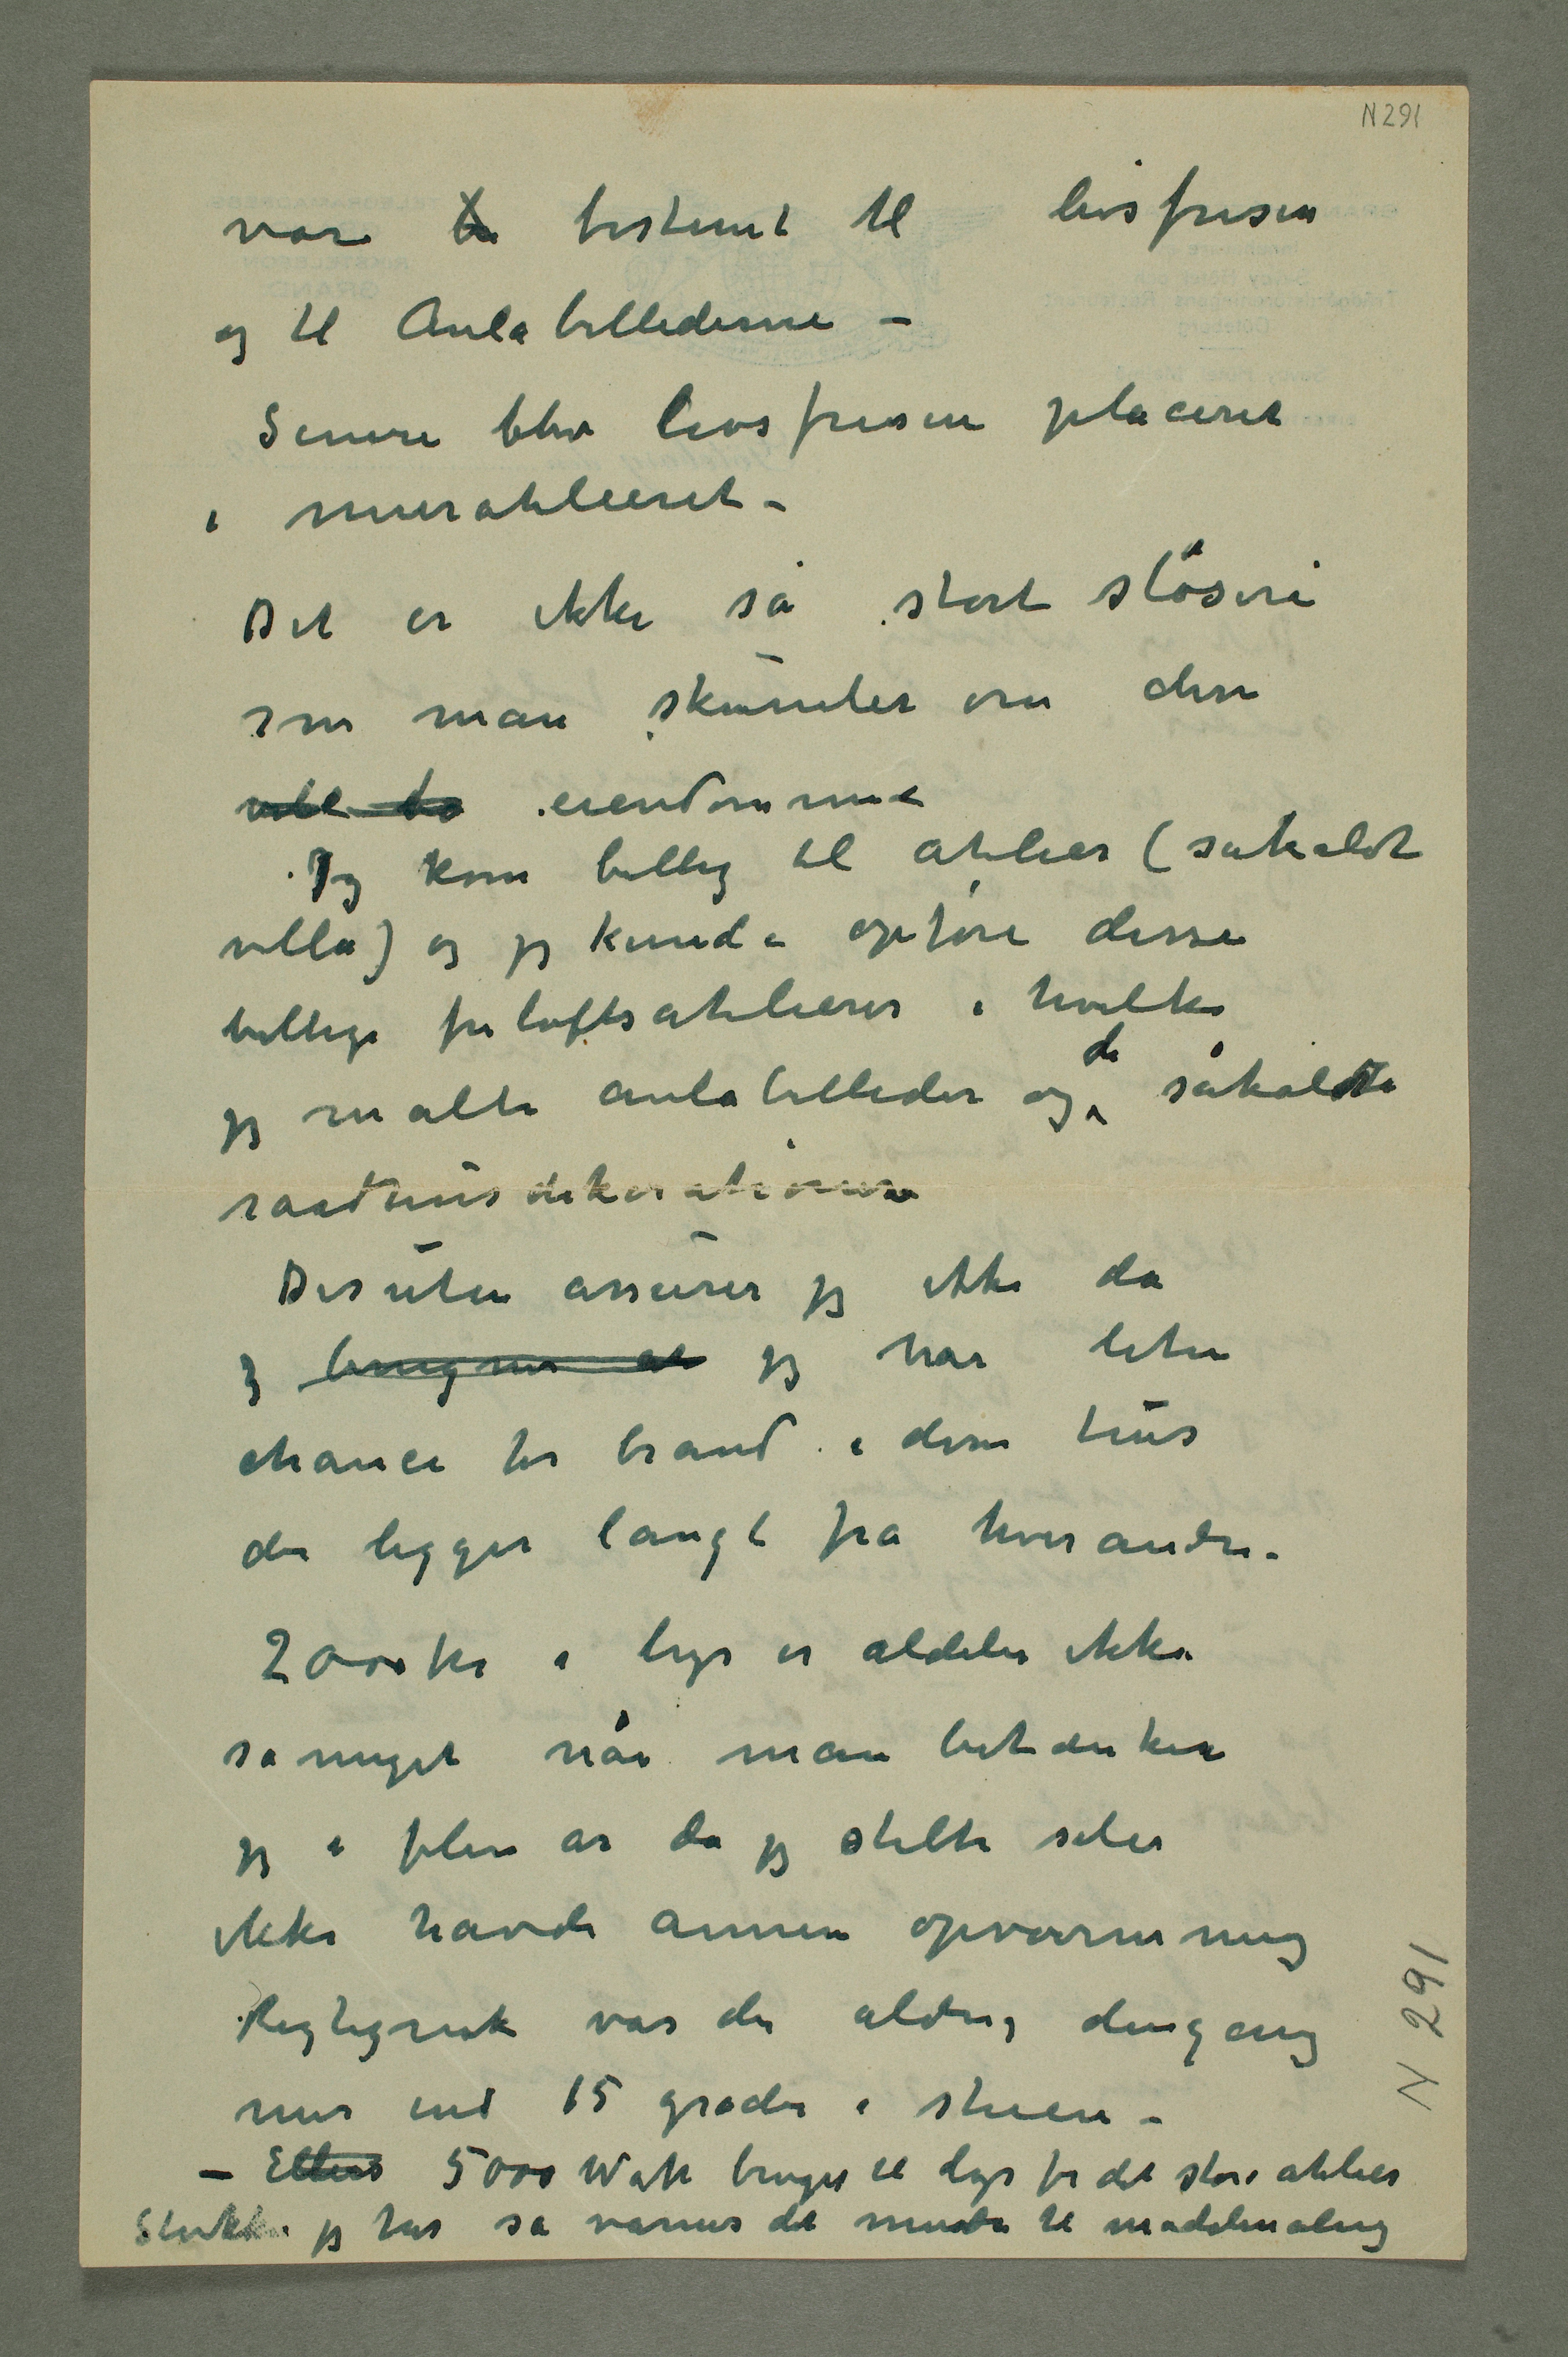 N 291
var be bestemt til livsfrisen
og til Aulabillederne –
Senere blev livsfrisen placeret
i muratelieret –
Det er ikke så stort slöseri
som man skumler om disse
vill to eiendomme
Jeg kom billig til atelier (såkaldt
villa) og jeg kunde opføre disse
billige friluftsatelierer i hvilke
jeg malte aulabilleder og de såkaldte
raadhusdekorationer
Desuten assurer jeg ikke da
jeg jeg har liten
chance for brand i disse hus
der ligger langt fra hverandre –
2000 kr i lys er aldeles ikke
så meget når man betænker
jeg i flere år da jeg stelte selv
ikke havde annen opvarmning
Rigtignok var der aldrig dengang
mer end 15 grader i stuene –
– Ellers 5000 Watt bruges til lys for det store atelier
Slukker jeg har så varmes det mindre til modelmaling
N 291